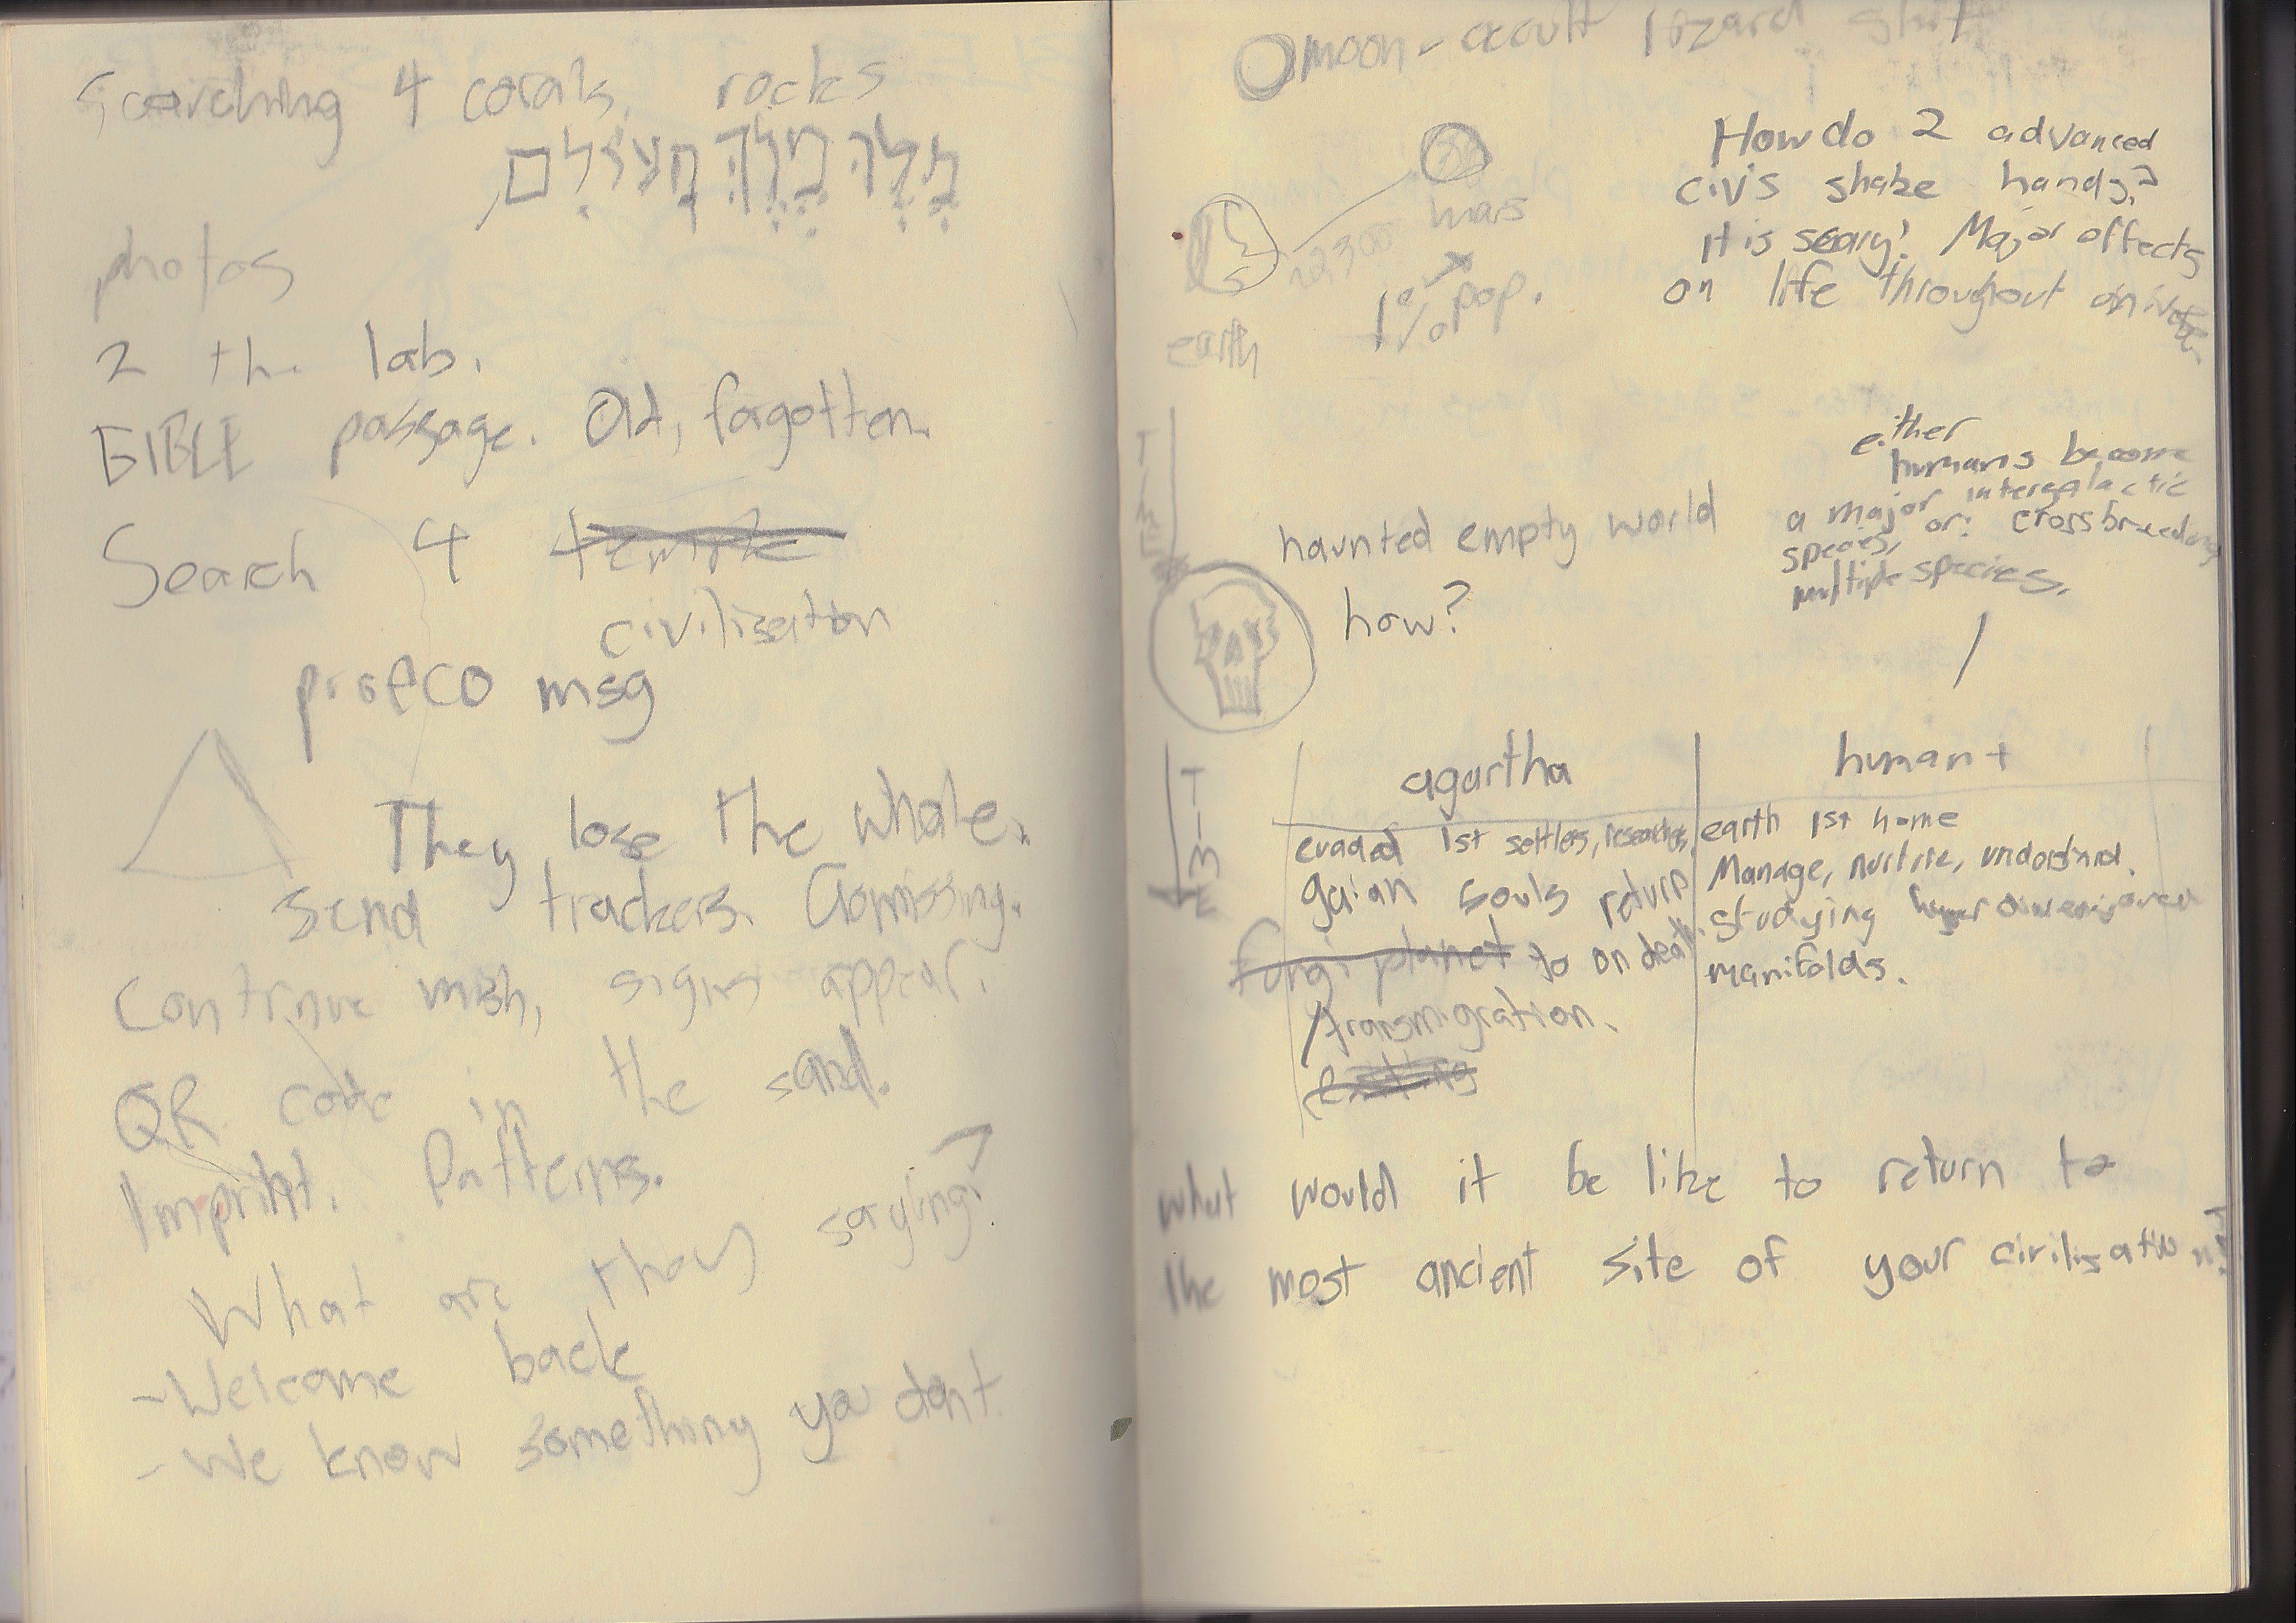 Searching 4 corals, rocks
photos
2 th. lab.
BIBLE passage. Old, forgotten.
Search 4 temple
civilisation
proeco msg
They lose the whole.
send trackers. Gomissing.
Continue mish, signs appear.
QR code in the sand.
Imprint. Patterns.
What are they saying?
- Welcome back
- We know something ya dont.
moon - occult lizard shit
How do 2 advanced
civ's shake hands?
It is scary! Major effects
on life throughout
mars
earth
1% pop.
TIME
either
humans become
a major intergalactic
species, or: crossbreeding
multiple species.
haunted empty world
how?
TIME
agartha
evaded 1st settlers,
gaian souls return
fungi planet to on death
/transmigration.
human +
earth 1st home
Manage, nurture, understand.
studying
manifolds.
what would it be like to return to
the most ancient site of your civilisation?